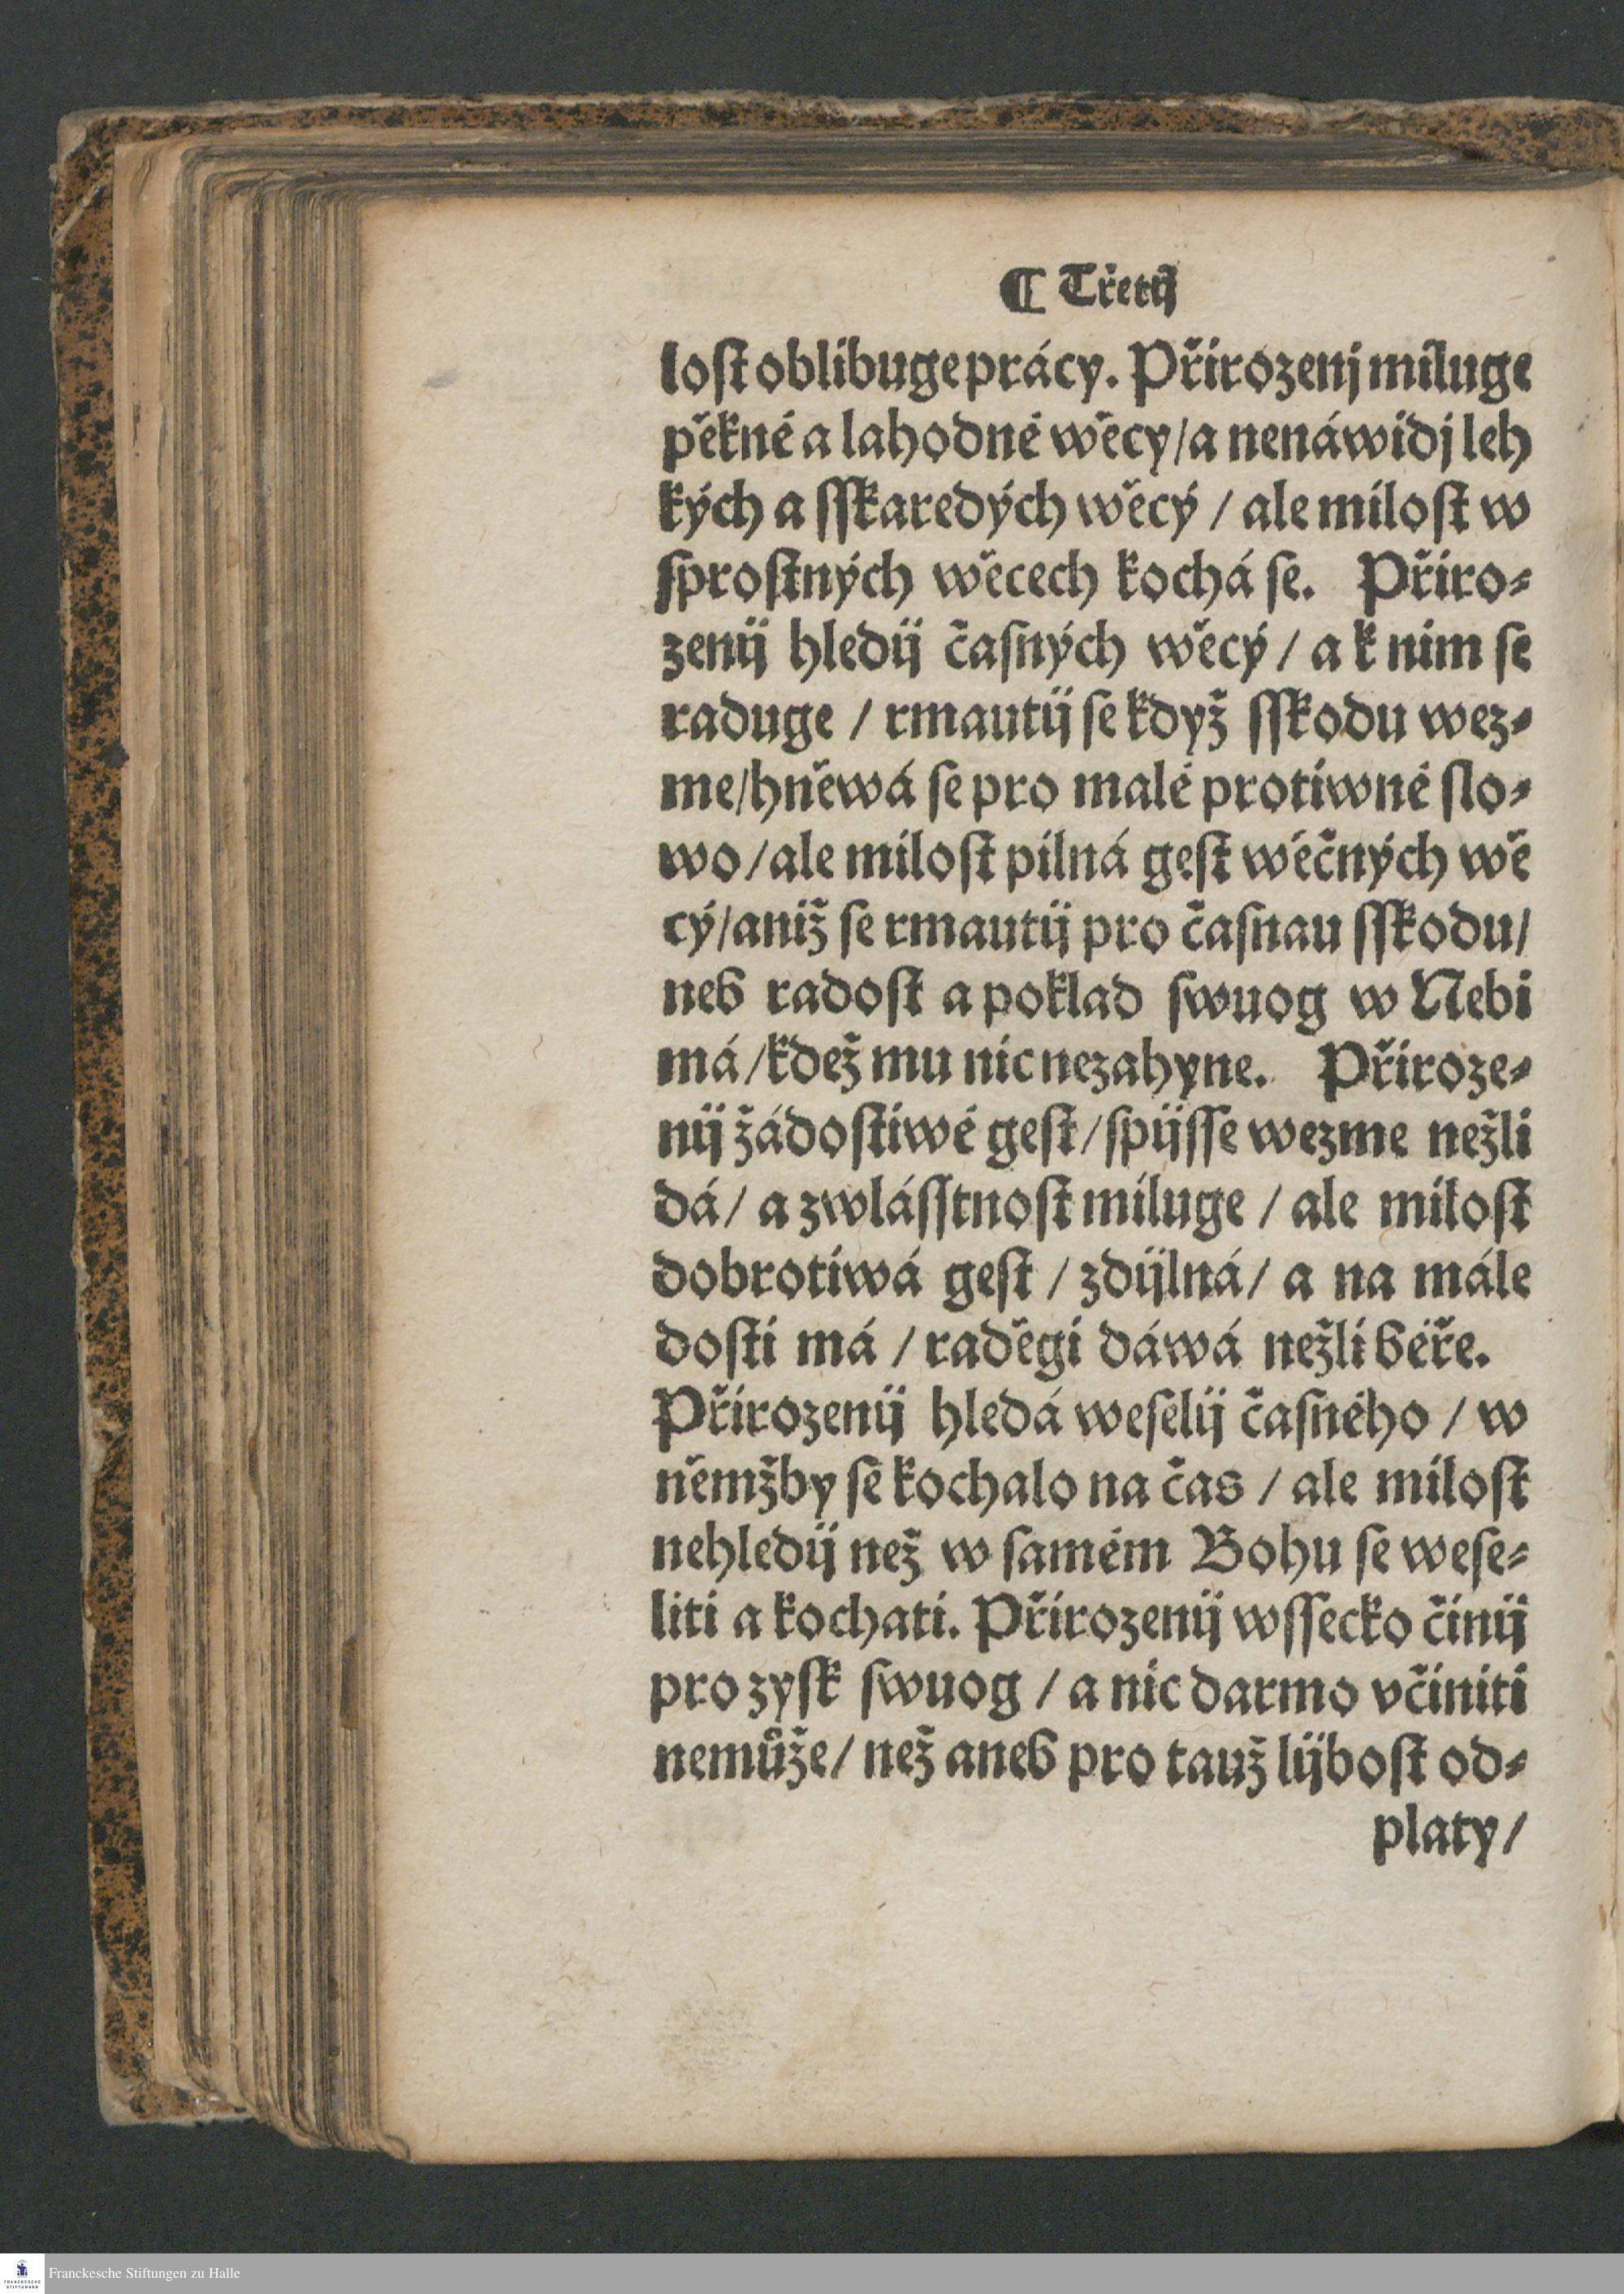 ¶ Třetij
loſt oblibuge prácy. Přirozenj miluge
pěkné a lahodné wěcy/a nenáwidj leh
kých a ſſkaredých wěcý / ale miloſt w
ſproſtných wěcech kochá ſe. Přiro-
zenij hledij čaſných wěcý / a k nim ſe
raduge / rmautij ſe když ſſkodu wez-
me/hněwá ſe pro malé protiwné ſlo-
wo/ale miloſt pilná geſt wěčných wě
cý/aniž ſe rmautij pro čaſnau ſſkodu/
neb radoſt a poklad ſwuog w Nebi
má/kdež mu nic nezahyne. Přiroze-
nij žádoſtiwé geſt/ſpijſſe wezme nežli
dá/ a zwláſſtnoſt miluge / ale miloſt
dobrotiwá geſt / zdijlná/ a na mále
doſti má / raděgi dáwá nežli béře.
Přirozenij hledá weſelij čaſného / w
němžby ſe kochalo na čas / ale miloſt
nehledij než w ſamém Bohu ſe weſe-
liti a kochati. Přirozenij wſſecko činij
pro zyſk ſwuog / a nic darmo včiniti
nemůže/ než aneb pro tauž lijboſt od-
platy/
Franckesche Stiftungen zu Halle